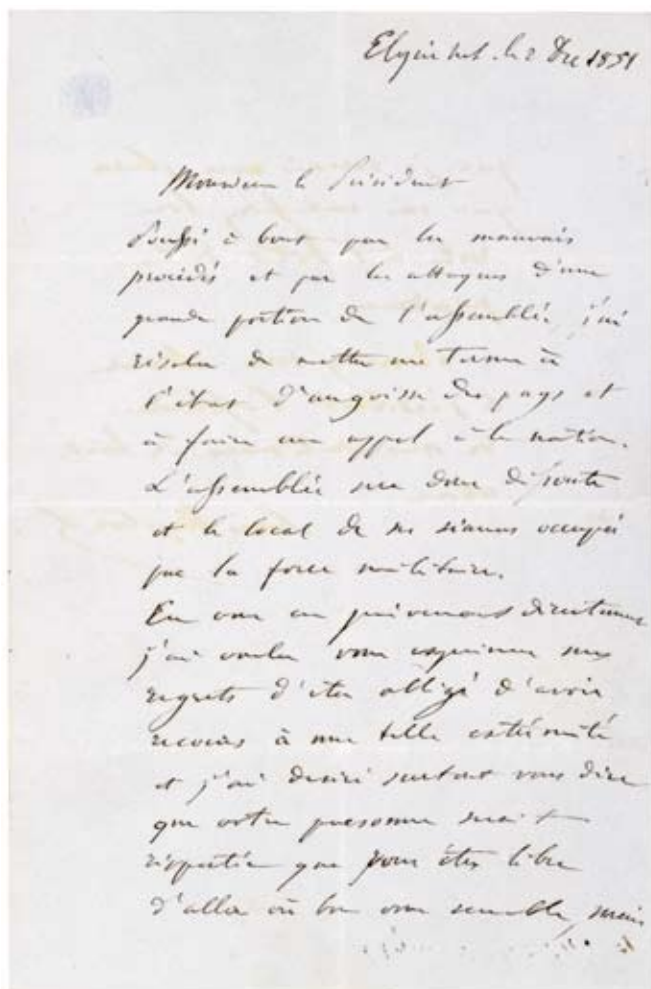 Elysée Nat. le 2 Dre 1851
Monsieur le Président
Poussé à bout par les mauvais
procédés et par les attaques d'une
grande portion de l'assemblée, j'ai
résolu de mettre un terme à
l'état d'angoisse du pays et
à faire un appel à la nation.
L'assemblée sera donc dissoute
et le local de ses séances occupé
par la force militaire.
En vous en prévenant directement
j'ai voulu vous exprimer mes
regrets d'être obligé d'avoir
recours à une telle extrémité
et j'ai désiré surtout vous dire
que votre personne serait
respectée que vous êtes libre
d'aller où bon vous semble, mais